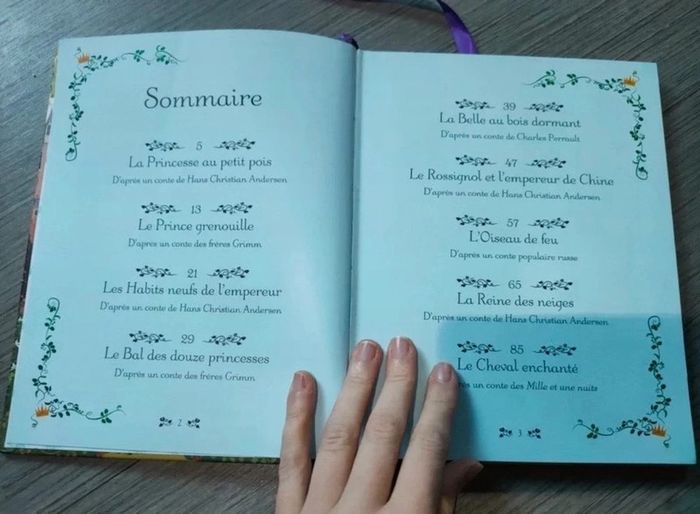 Sommaire
5
La Princesse au petit pois
D'après un conte de Hans Christian Andersen
13
Le Prince grenouille
D'après un conte des frères Grimm
21
Les Habits neufs de l'empereur
D'après un conte de Hans Christian Andersen
29
Le Bal des douze princesses
D'après un conte des frères Grimm
2
39
La Belle au bois dormant
D'après un conte de Charles Perrault
47
Le Rossignol et l'empereur de Chine
D'après un conte de Hans Christian Andersen
57
L'Oiseau de feu
D'après un conte populaire russe
65
La Reine des neiges
D'après un conte de Hans Christian Andersen
85
Le Cheval enchanté
un conte des Mille et une nuits
3